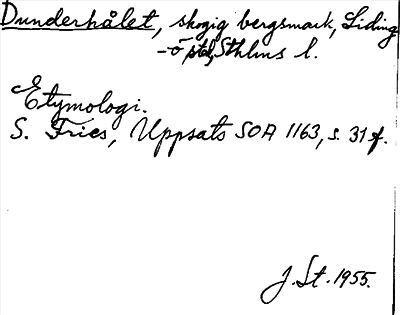 Dunderhålet, skogig bergsmark, Liding
-ö std, Sthlms l.
Etymologi.
S. Fries, Uppsats SOA 1163, s. 31 f.
J. St. 1955.